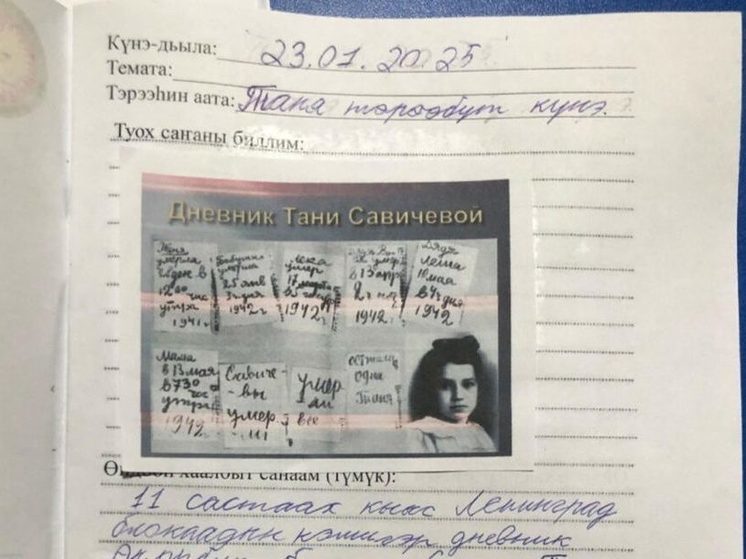 Күнэ-дьыла: 23.01.2025
Темата:
Тэрээһин аата: Таня төрөөбүт күнэ.
Туох саҥаны биллим:
Дневник Тани Савичевой
Женя умерла 28 дек в 12 00 час утра 1941 г
Бабушка умерла 25 янв 3 ч дня 1942 г
Лека умер 17 марта 1942 г
Дядя Вася умер в 13 апр 2 ч 1942
Дядя Леша 10 мая в 4 ч дня 1942
Мама в 13 мая в 7 30 час утра 1942
Савичевы умерли
умерли все
осталась одна Таня
хаалбыт санаам (түмүк):
11 саастаах кыыс Ленинград
блокадын кэмигэр дневник